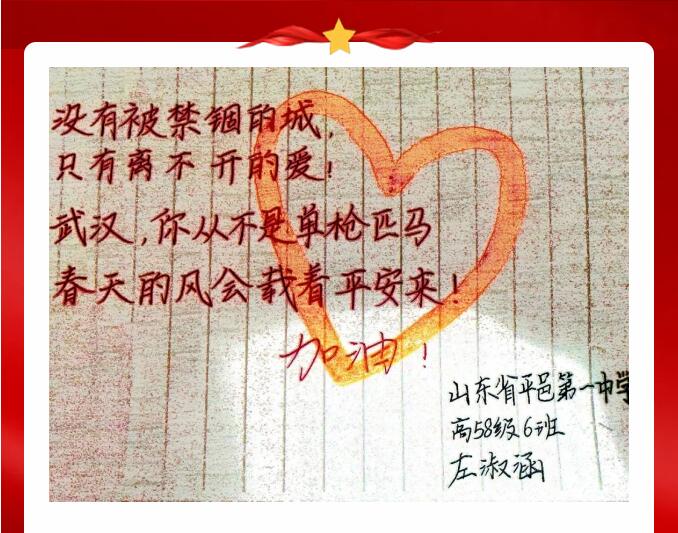 没有被禁锢的城,
只有离不开的爱!
武汉,你从不是单枪匹马
春天的风会载着平安来!
加油!
山东省平邑第一中学
高58级6班
左淑涵